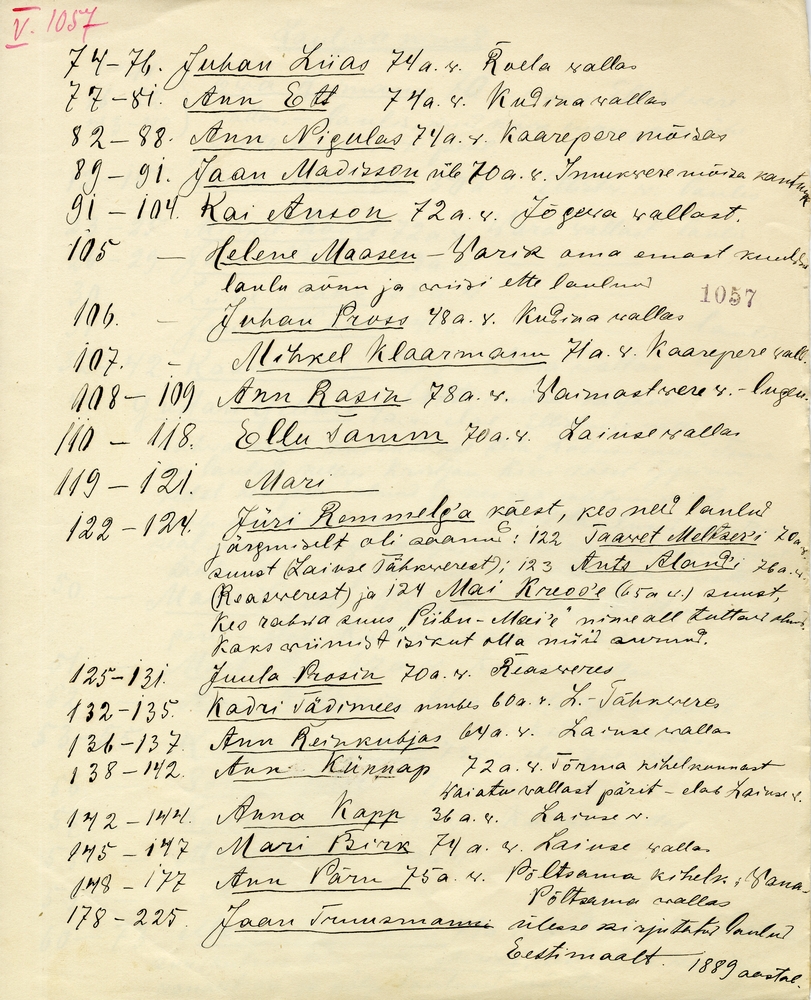 V. 1057
74-76. Juhan Liias 74 a. v. Roela wallas
77-81. Ann Ett 74 a. v. Kudina wallas
82-88. Ann Nigulas 74 a. v. Kaarepere mõisas
89-91. Jaan Madisson üle 70 a. v. mõisa
91-104. Kai Anson 72 a. v. Jõgewa wallast.
105 — Helene Maasen - Warik oma emast
laulu sõnu ja wiisi ette laulnud
1057
106. - Juhan Pross 48 a. v. Kudina wallas
107. - Mihkel Klaarmann 71 a. v. Kaarepere wall.
108-109 Ann Rasin 78 a. v. Waimastwere w. -
110-118. Ellu Tamm 70 a. v. Laiuse wallas
119-121. Mari
122-124. Jüri Remmelg'a käest, kes need laulud
järgmiselt oli saanud: 122 Taawet Meltser'i 70 a. v.
suust (Laiuse Tähkwerest); 123 Ants Aland'i 76 a. v.
(Reaswerest) ja 124 Mai Kroos'e (65 a. v.) suust,
kes rahwa suus „Piibu-Mai'e" nime all tuttaw olnud.
Kaks wiimist isikut olla nüüd surnud.
125-131. Juula Prosin 70 a. v. Reasweres
132-135. Kadri Tädimees umbes 60 a. v. L.-Tähkweres
136-137 Ann Reinkubjas 64 a. v. Laiuse wallas
138-142. Ann Künnap 72 a. v. Torma kihelkonnast
Waiatu wallast pärit - elab Laiuse w.
142-144. Anna Kapp 36 a. v. Laiuse v.
145-147 Mari Birk 74 a. v. Laiuse wallas
148-177 Ann Pärn 75 a. v. Põltsama kihelk; Wana-
Põltsama wallas
178-225. Jaan Truusmanni ülesse kirjutatud laulud
Eestimaalt. 1889 aastal.